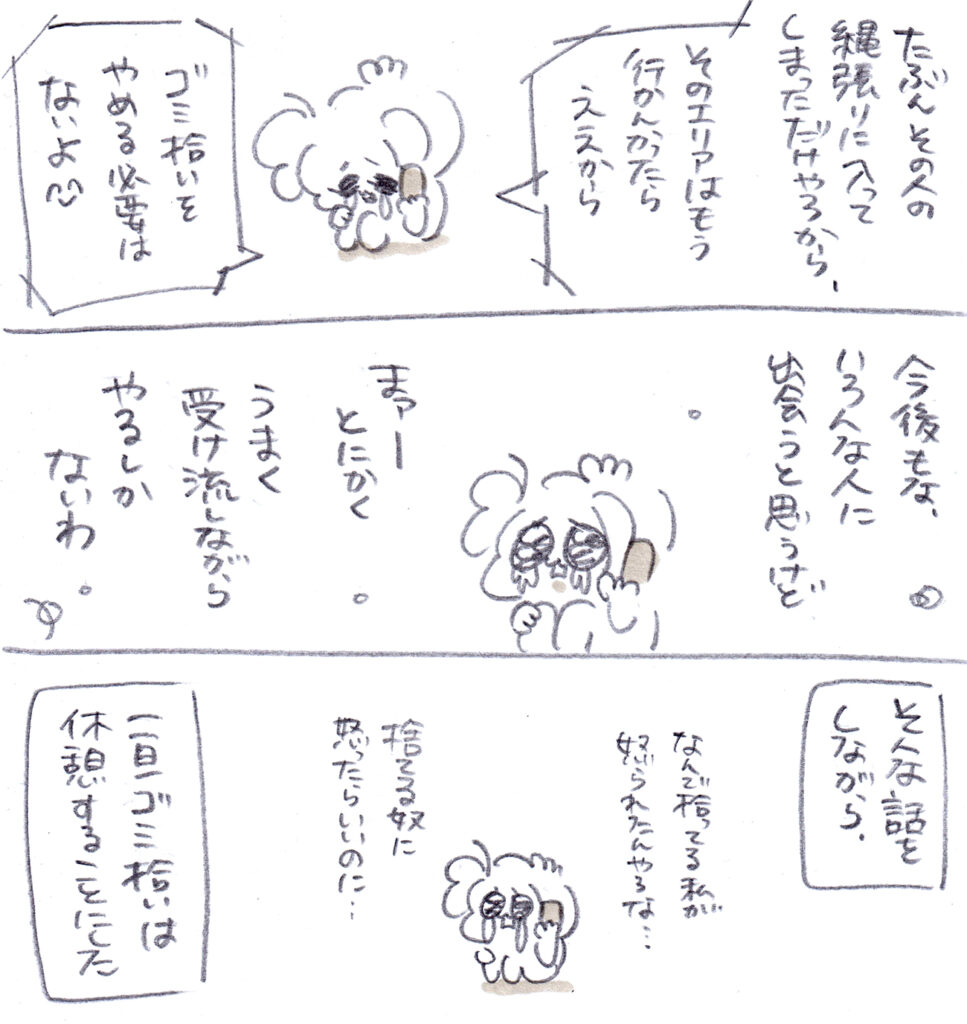 たぶんその人の
縄張りに入って
しまっただけやろから、
そのエリアはもう
行かんかったら
ええから
ゴミ拾いを
やめる必要は
ないよ
今後もな、
いろんな人に
出会うと思うけど
まァー
とにかく
うまく
受け流しながら
やるしか
ないわ
そんな話を
しながら、
なんで拾ってる私が
怒られたんやろな…
捨てる奴に
怒ったらいいのに…
一旦ゴミ拾いは
休憩することにした